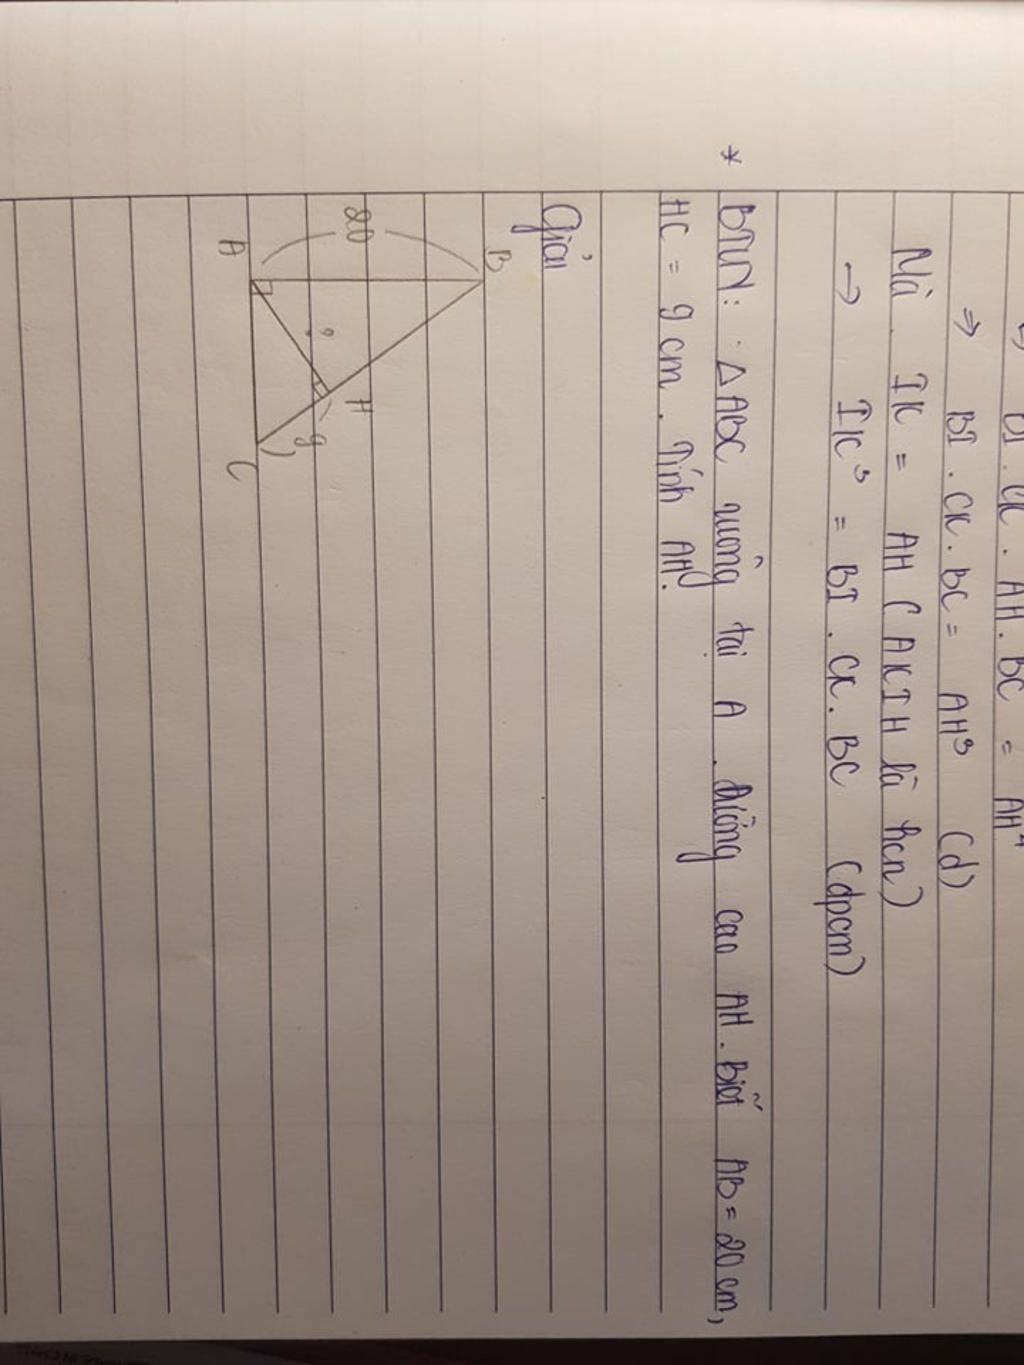 BI . CK . AH . BC = AH⁴
⇒ BI . CK . BC = AH³ (d)
Mà IK = AH ( AKIH là hcn )
→ IK³ = BI . CK . BC (đpcm)
* BTVN : ΔABC vuông tại A . Đường cao AH . Biết AB = 20 cm,
HC = 9 cm . Tính AH .
Giải
B
20
H
?
9
A
C